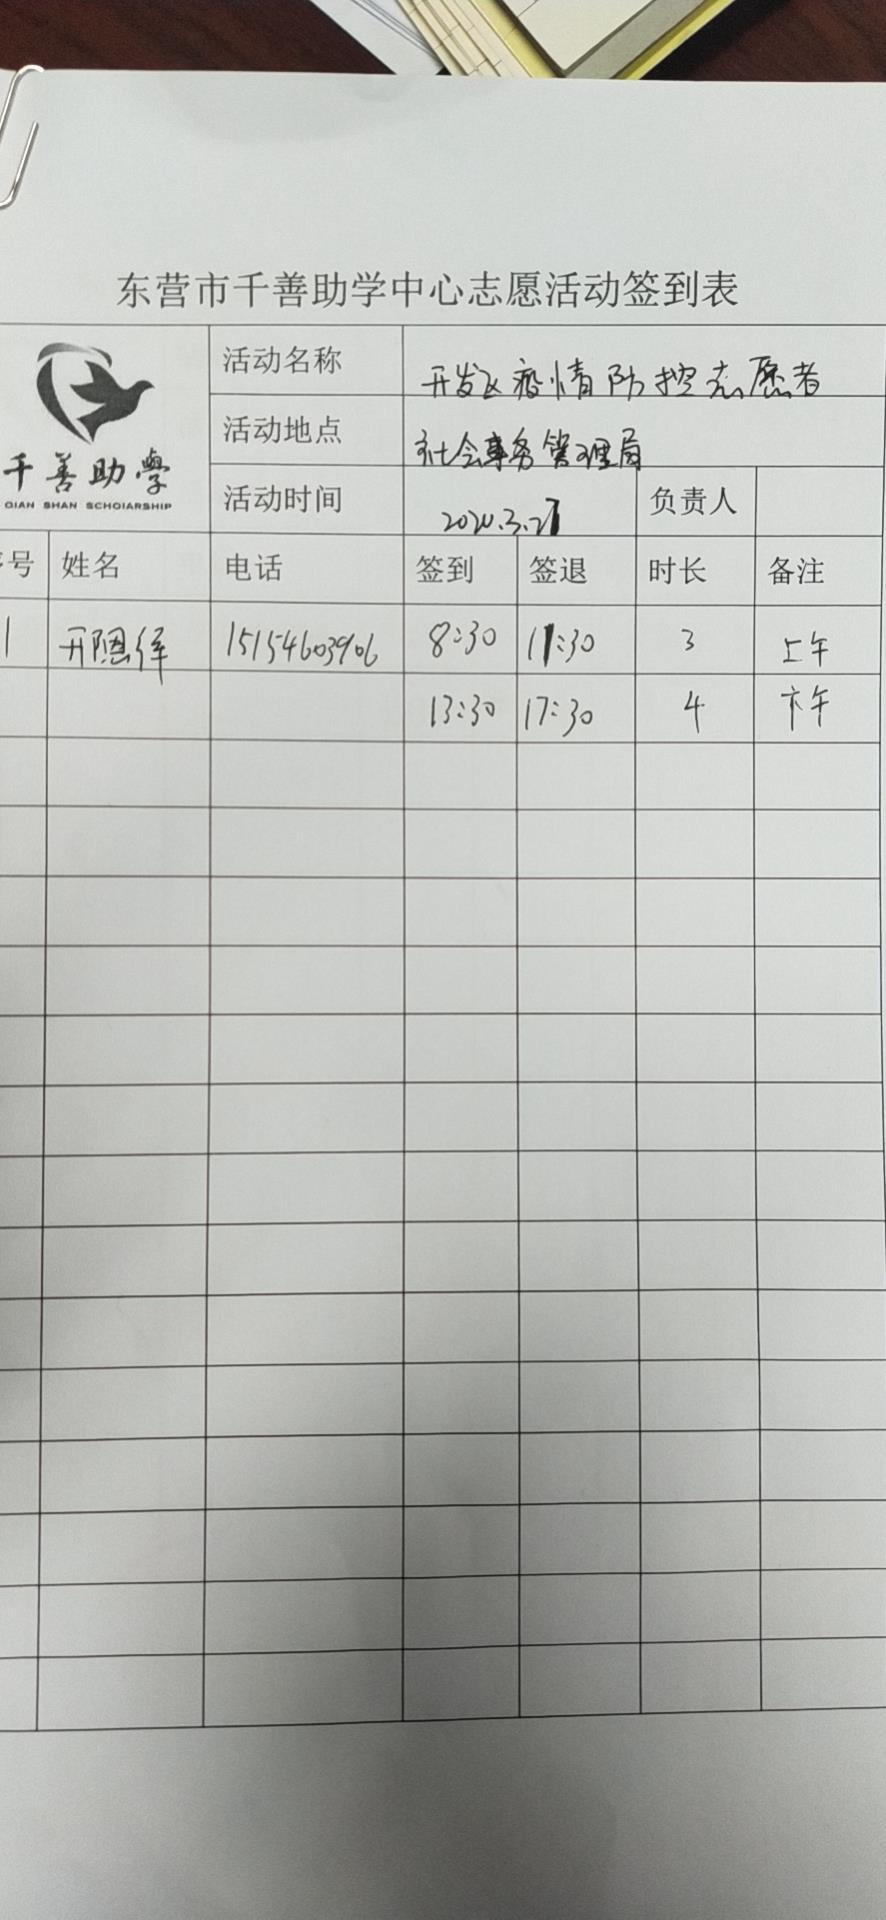 东营市千善助学中心志愿活动签到表
千善助學
QIAN SHAN SCHOLARSHIP
活动名称 开发区疫情防控志愿者
活动地点 社会事务管理局
活动时间 2020.3.27 负责人
号 姓名 电话 签到 签退 时长 备注
1 15154603906 8:30 11:30 3 上午
13:30 17:30 4 下午